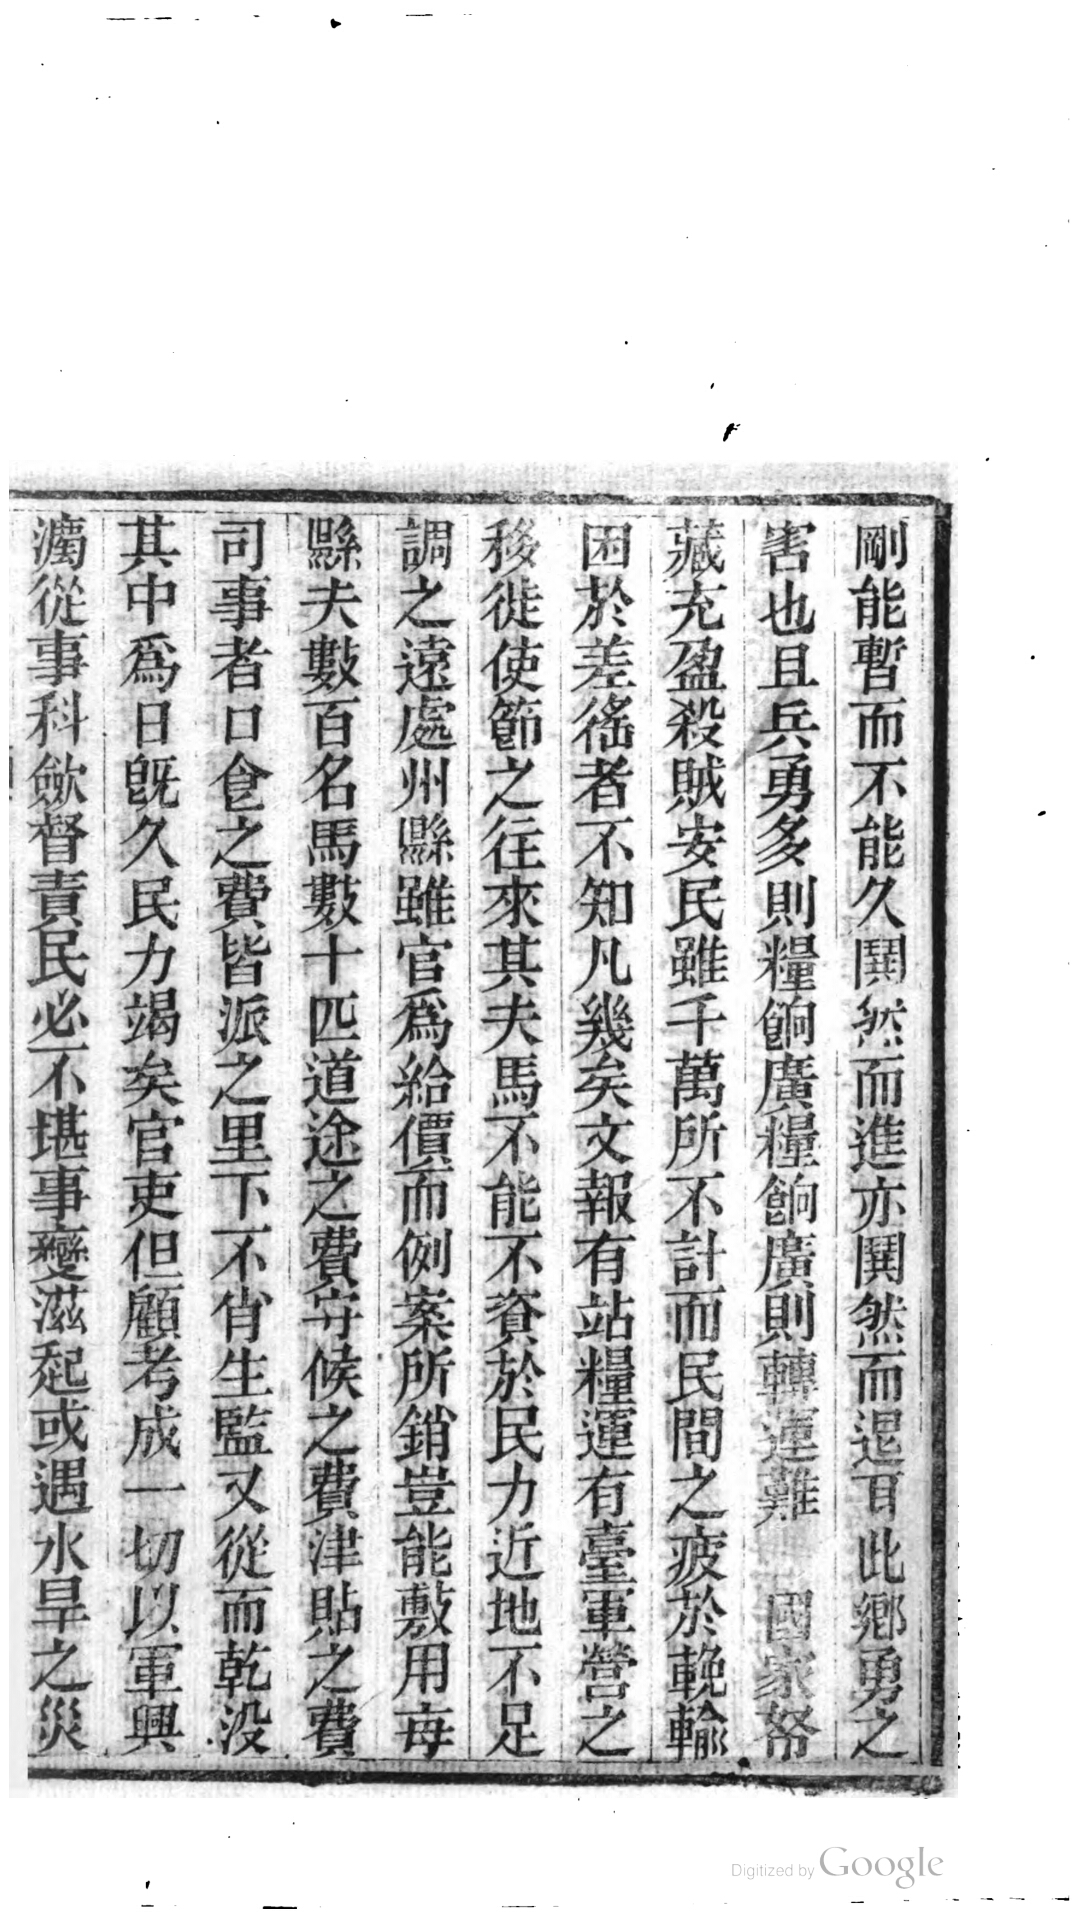 剛能暫而不能久鬨然而進亦鬨然而退耳此鄉勇之
害也且兵勇多則糧餉廣糧餉廣則轉運難　國家帑
藏充盈殺賊安民雖千萬所不計而民間之疲於輓輸
困於差徭者不知凡幾矣文報有站糧運有臺軍營之
移徙使節之往來其夫馬不能不資於民力近地不足
調之遠處州縣雖官爲給價而例案所銷豈能敷用每
縣夫數百名馬數十匹道途之費守候之費津貼之費
司事者口食之費皆派之里下不肖生監又從而乾没
其中爲日旣久民力竭矣官吏但顧考成一切以軍興
瀆從事科歛督責民必不堪事變滋起或遇水旱之災
Digitized by Google